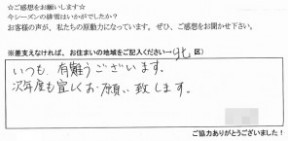 ☆ご感想をお願いします☆
今シーズンの排雪はいかがでしたか？
お客様の声が、私たちの原動力になっています。ぜひ、ご感想をお聞かせ下さい。
※差支えなければ、お住まいの地域をご記入ください→北 区）
いつも有難うございます。
次年度も宜しくお願い致します。
ご協力ありがとうございました！